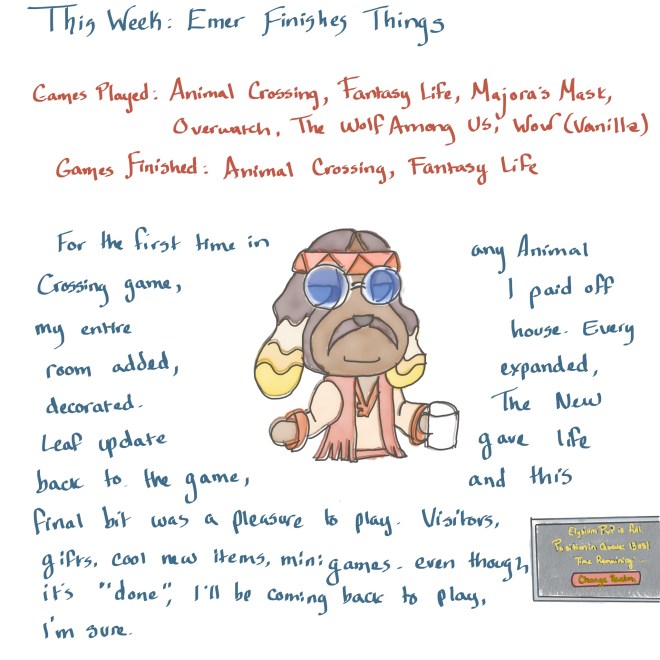 This Week: Emer Finishes Things
Games Played: Animal Crossing, Fantasy Life, Majora's Mask,
Overwatch, The Wolf Among Us, WoW (Vanilla)
Games Finished: Animal Crossing, Fantasy Life
For the first time in any Animal
Crossing game, I paid off
my entire house. Every
room added, expanded,
decorated. The New
Leaf update gave life
back to the game, and this
final bit was a pleasure to play. Visitors,
gifts, cool new items, mini games. even though
it's "done", I'll be coming back to play,
I'm sure.
Elysium PvP is Full
Position in Queue: 1381
Time Remaining:
Change Realm